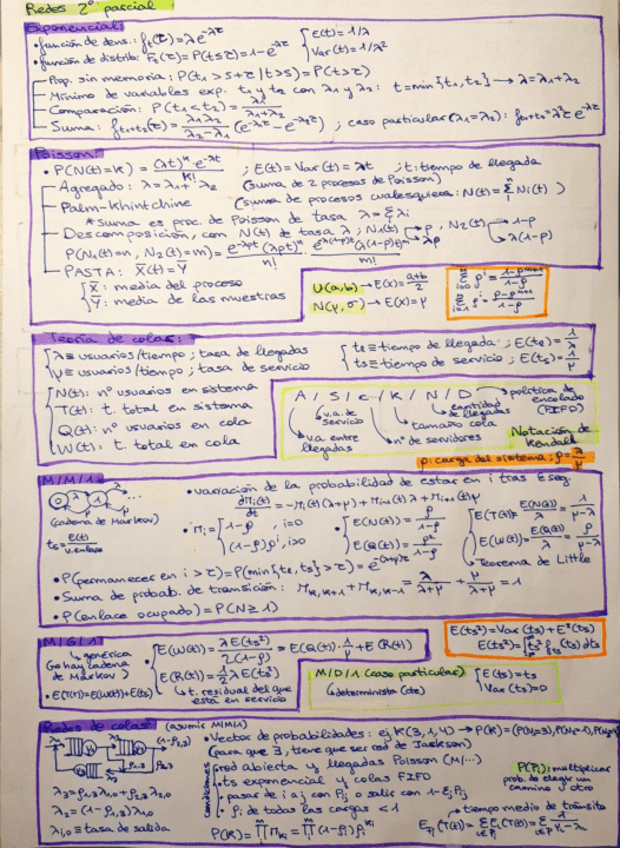 Redes 2º parcial
Exponencial:
• función de dens.: f_t(τ)=λe^-λτ { E(t)=1/λ
• función de distrib: F_t(τ)=P(t≤τ)=1-e^-λτ { Var(t)=1/λ²
- Prop. sin memoria: P(t₁>s+τ|t>s)=P(t>τ)
- Mínimo de variables exp. t₁ y t₂ con λ₁ y λ₂: t=min{t₁,t₂} → λ=λ₁+λ₂
- Comparación: P(t₁<t₂)=λ₁/(λ₁+λ₂)
- Suma: f_t₁+t₂(τ)=λ₁λ₂/(λ₂-λ₁)(e^-λ₁τ-e^-λ₂τ) ; caso particular (λ₁=λ₂): f_t₁+t₂=λ²τe^-λτ
Poisson:
• P(N(t)=k)=(λt)^k·e^-λt/k! ; E(t)=Var(t)=λt ; t: tiempo de llegada
- Agregado: λ=λ₁+λ₂ (suma de 2 procesos de Poisson)
- Palm-Khintchine (suma de procesos cualesquiera: N(t)=Σ Ni(t))
*Suma es proc. de Poisson de tasa λ=Σλi
- Descomposición, con N(t) de tasa λ; N₁(t) → p → λp, N₂(t) → 1-p → λ(1-p)
P(N₁(t)=n, N₂(t)=m)=e^-λpt(λpt)^n/n! · e^-λ(1-p)t(λ(1-p)t)^m/m!
- PASTA: X̄(t)=Ȳ
{ X̄: media del proceso
{ Ȳ: media de las muestras
U(a,b) → E(X)=(a+b)/2
N(μ,σ) → E(X)=μ
Σ i=0 ρ^i=(1-ρ^n+1)/(1-ρ)
Σ i=1 ρ^i=(ρ-ρ^n+1)/(1-ρ)
Teoría de colas:
{ λ≡usuarios/tiempo; tasa de llegadas { te≡tiempo de llegada; E(te)=1/λ
{ μ≡usuarios/tiempo; tasa de servicio { ts≡tiempo de servicio; E(ts)=1/μ
N(t): nº usuarios en sistema
T(t): t. total en sistema
Q(t): nº usuarios en cola
W(t): t. total en cola
A / S / c / K / N / D → política de encolado (FIFO)
v.a. de servicio
cantidad de llegadas
tamaño cola
v.a entre llegadas
nº de servidores
Notación de Kendall
ρ: carga del sistema; ρ=λ/μ
M/M/1:
• variación de la probabilidad de estar en i tras τ seg.
dΠi(t)/dt=-Πi(t)(λ+μ)+Πi-1(t)λ+Πi+1(t)μ
(cadena de Markov)
• Πi={ 1-ρ, i=0
(1-ρ)ρ^i, i>0
• { E(N(t))=ρ/(1-ρ)
E(Q(t))=ρ²/(1-ρ)
E(T(t))=E(N(t))/λ=1/(μ-λ)
E(W(t))=E(Q(t))/λ=ρ/(μ-λ)
Teorema de Little
• P(permanecer en i>τ)=P(min{te,ts}>τ)=e^-(λ+μ)τ
• Suma de probab. de transición: Π_k,k+1+Π_k,k-1=λ/(λ+μ)+μ/(λ+μ)=1
• P(enlace ocupado)=P(N≥1)
M/G/1:
genérica
(no hay cadena de Markov)
• E(T(t))=E(W(t))+E(ts)
• { E(W(t))=λE(ts²)/2(1-ρ)=E(Q(t))·1/μ+E(R(t))
E(R(t))=1/2 λE(ts²)
t. residual del que está en servicio
E(ts²)=Var(ts)+E²(ts)
E(ts²)=∫ts² f(ts)dts
M/D/1 (caso particular) { E(ts)=ts
determinista (cte) Var(ts)=0
Redes de colas: (asumir M/M/1)
λ₂=(1-ρ₁,₃)λ₁,₀
λi,o≡tasa de salida
• Vector de probabilidades: ej K(3,1,4) → P(K)=
(para que ∃, tiene que ser red de Jackson)
Condiciones
red abierta y llegadas Poisson (M/...)
ts exponencial y colas FIFO
pasar de i a j con Pij o salir con 1-ΣjPij
ρi de todas las cargas <1
P(K)=ΠΠki=Π(1-ρi)ρi^ki
P(Pi): multiplicar prob. de elegir un camino y otro
tiempo medio de tránsito